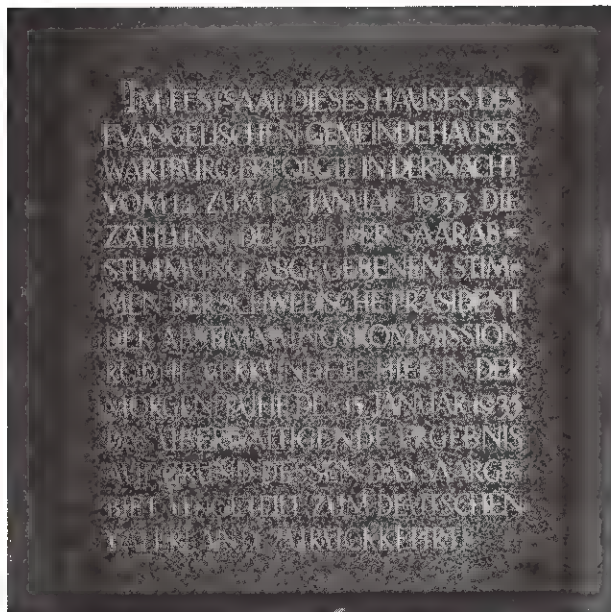 IM FESTSAAL DIESES HAUSES DES
EVANGELISCHEN GEMEINDEHAUSES
WARTBURG ERFOLGTE IN DER NACHT
VOM 14. ZUM 15. JANUAR 1935 DIE
ZÄHLUNG DER BEI DER SAARAB=
STIMMUNG ABGEGEBENEN STIM=
MEN. DER SCHWEDISCHE PRÄSIDENT
DER ABSTIMMUNGSKOMMISSION
RODHE VERKÜNDETE HIER IN DER
DES 15. JANUAR 1935
DAS ÜBERWÄLTIGENDE ERGEBNIS
AUF GRUND DESSEN DAS SAARGE=
BIET UNGETEILT ZUM DEUTSCHEN
VATERLAND ZURÜCKKEHRT